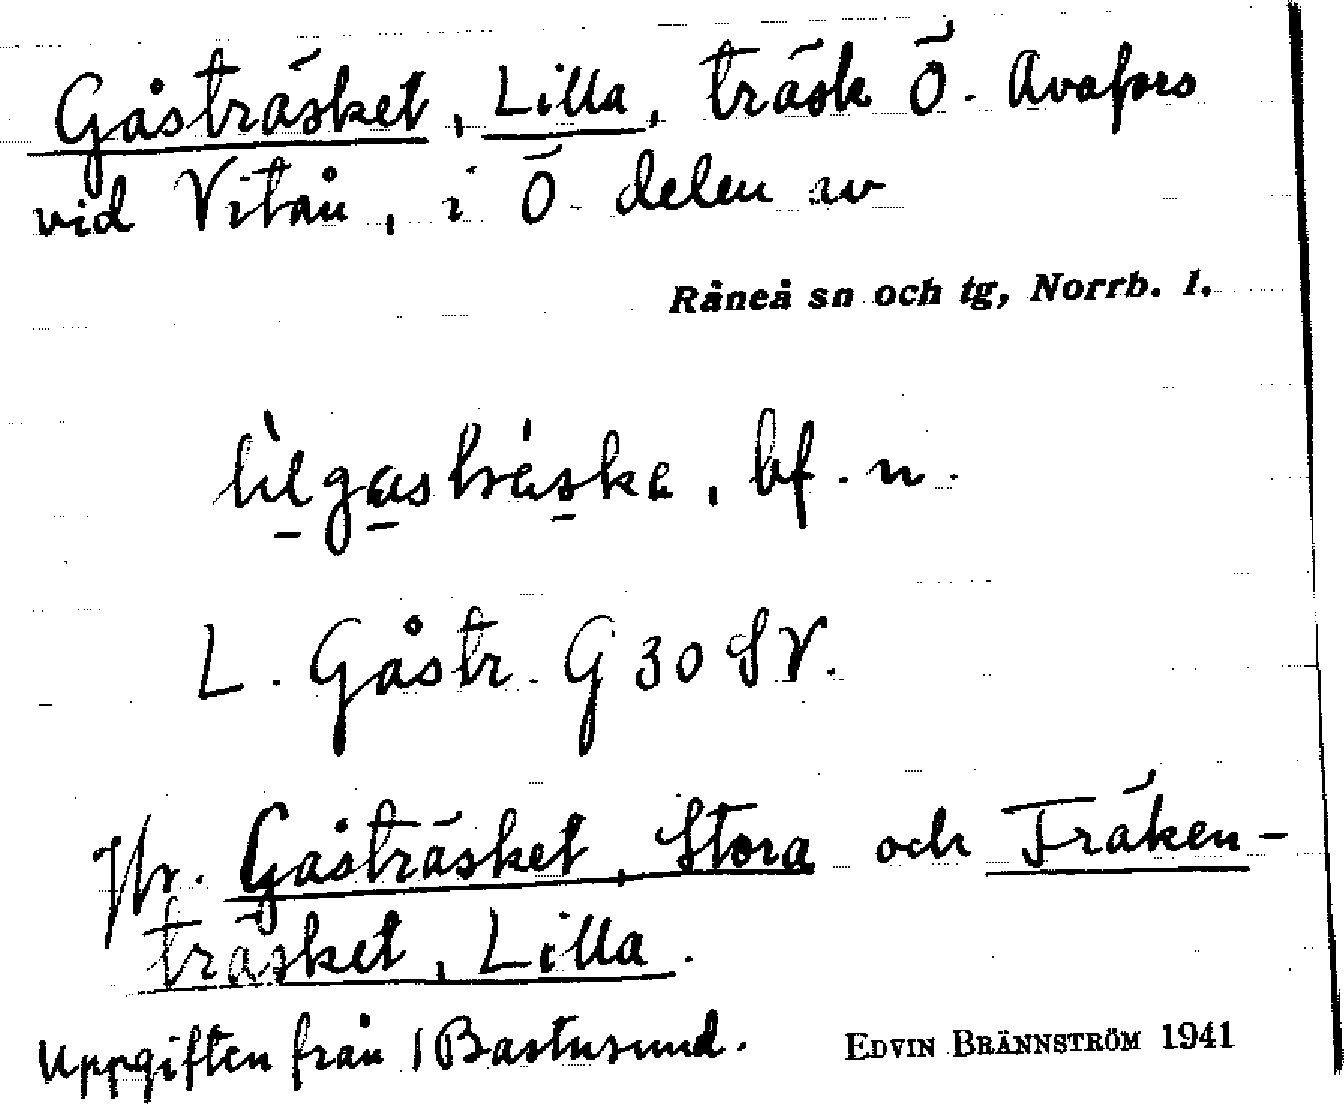 Gåsträsket, Lilla, träsk Ö. Avafors
vid Vitån, i Ö. delen av
Råneå sn och tg, Norrb. l.
bf. n.
L. Gåstr. G 30 SV.
Jfr. Gåsträsket, Stora och Fräken-
träsket, Lilla.
Uppgiften från 1 Bastusund.
EDVIN BRÄNNSTRÖM 1941